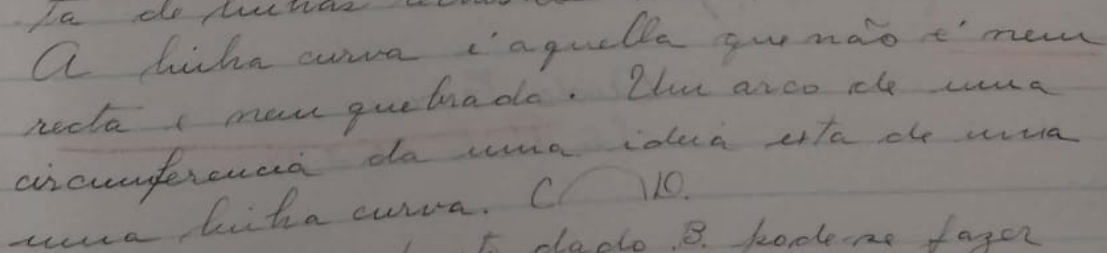 ta de linhas
A linha curva é aquella que não é nem
recta e nem quebrada. Um arco de uma
circumferencia da uma ideia esta de uma
uma linha curva. C D.
dado B. pode-se fazer